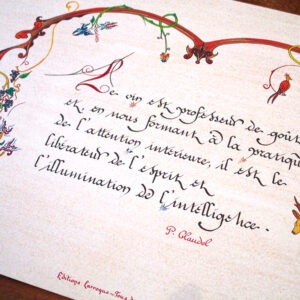 Le vin est professeur de goût
et en nous formant à la pratique
de l'attention intérieure, il est le
libérateur de l'esprit et
l'illumination de l'intelligence.
P. Claudel
Editions Carroque - Tous d